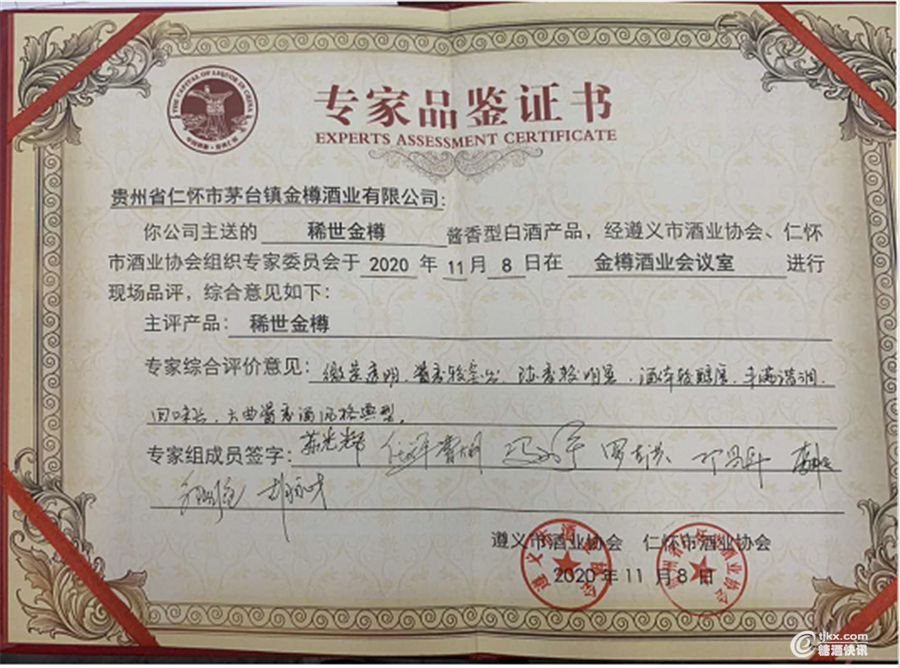 THE CAPITAL OF LIQUOR IN CHINA
专家品鉴证书
EXPERTS ASSESSMENT CERTIFICATE
贵州省仁怀市茅台镇金樽酒业有限公司:
你公司主送的 稀世金樽 酱香型白酒产品，经遵义市酒业协会、仁怀
市酒业协会组织专家委员会于 2020 年 11 月 8 日在 金樽酒业会议室 进行
现场品评，综合意见如下：
主评产品： 稀世金樽
专家综合评价意见：微黄透明、酱香较突出、陈香较明显、酒体较醇厚、丰满谐调、
回味长、大曲酱香酒风格典型。
专家组成员签字：
遵义市酒业协会 仁怀市酒业协会
2020 年 11 月 8 日
tjkx.com
糖酒快讯